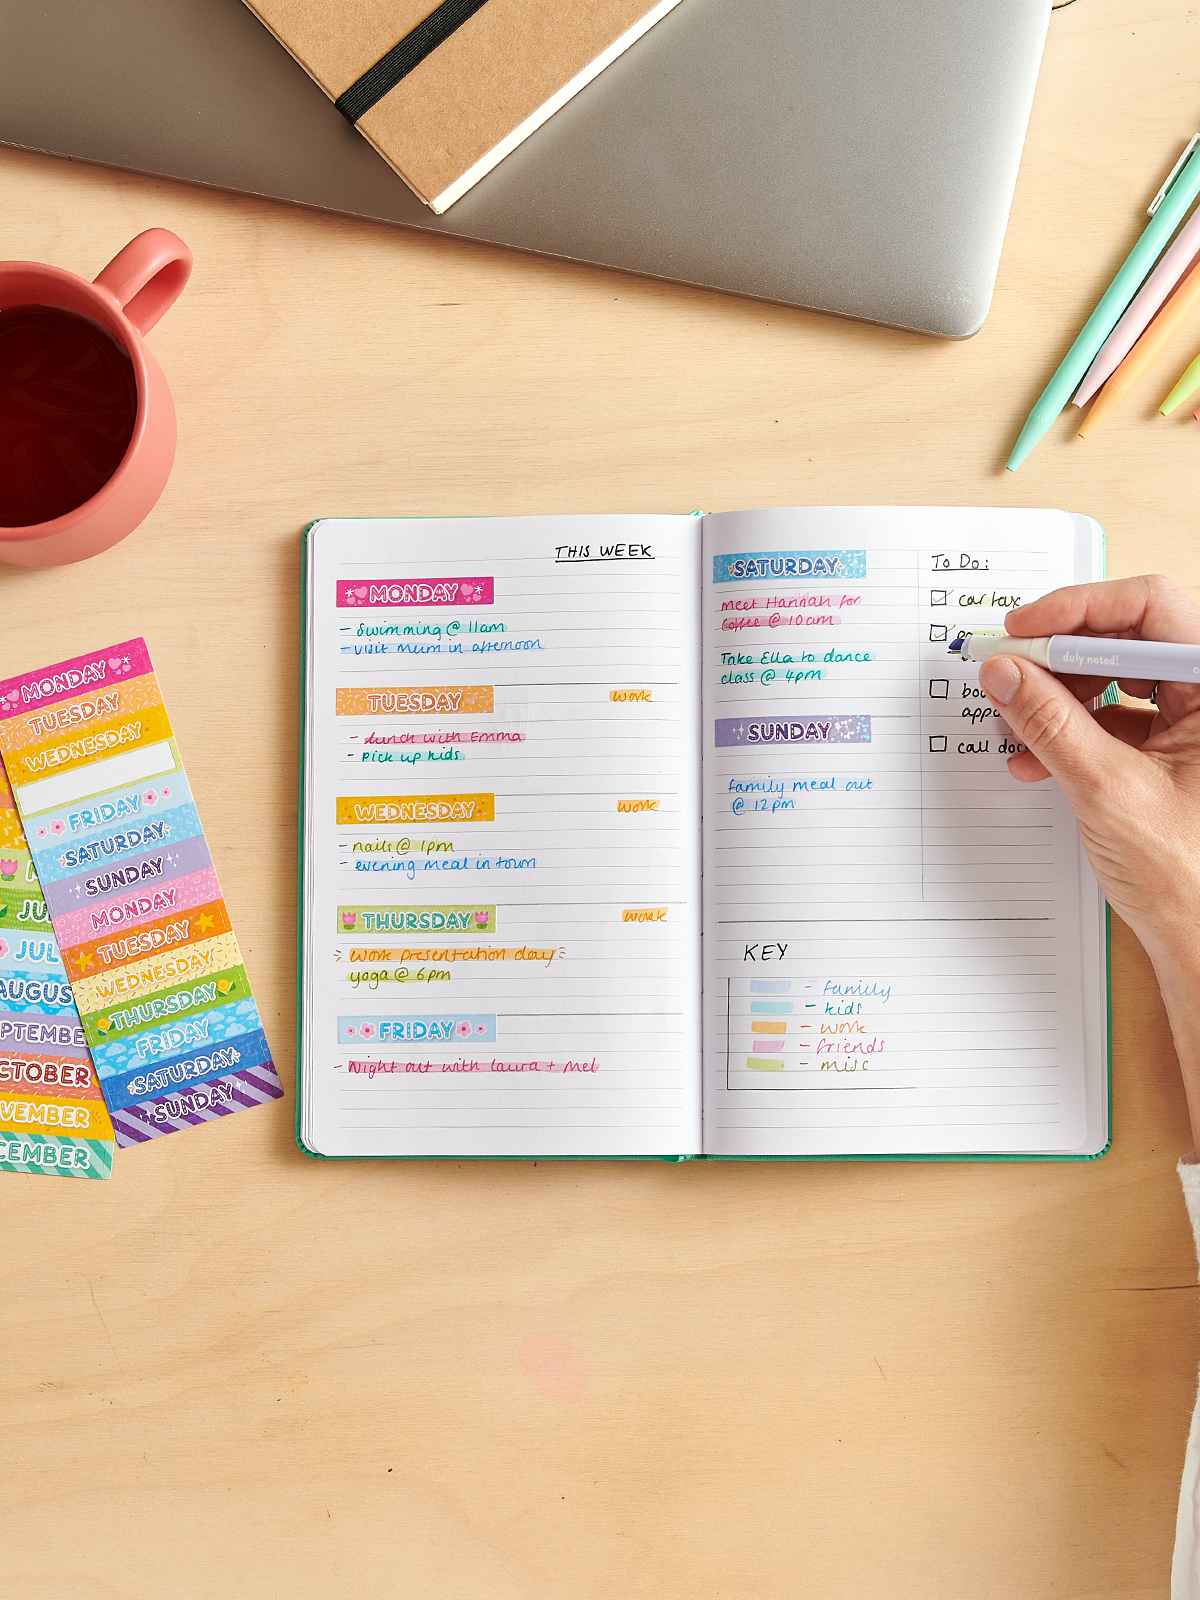 THIS WEEK
MONDAY
- Swimming @ 11am
- visit mum in afternoon
TUESDAY
work
- lunch with Emma
- Pick up kids
WEDNESDAY
work
- nails @ 1pm
- evening meal in town
THURSDAY
work
work presentation day
yoga @ 6pm
FRIDAY
- Night out with Laura + Mel
SATURDAY
meet Hannah for
coffee @ 10am
Take Ella to dance
class @ 4pm
SUNDAY
family meal out
@ 12pm
To Do:
car tax
call
KEY
- family
- kids
- work
- friends
- misc
duly noted!
MONDAY
TUESDAY
WEDNESDAY
FRIDAY
SATURDAY
SUNDAY
MONDAY
TUESDAY
WEDNESDAY
THURSDAY
FRIDAY
SATURDAY
SUNDAY
JU
JUL
AUGUS
PTEMBE
CTOBER
VEMBER
CEMBER